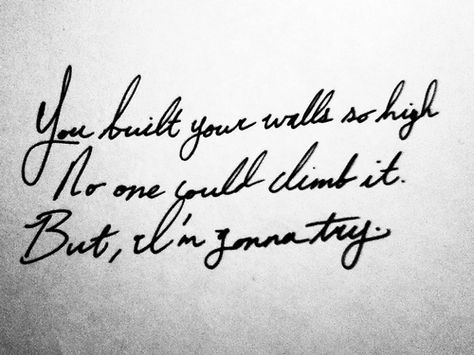 You built your walls so high
No one could climb it.
But, I'm gonna try.